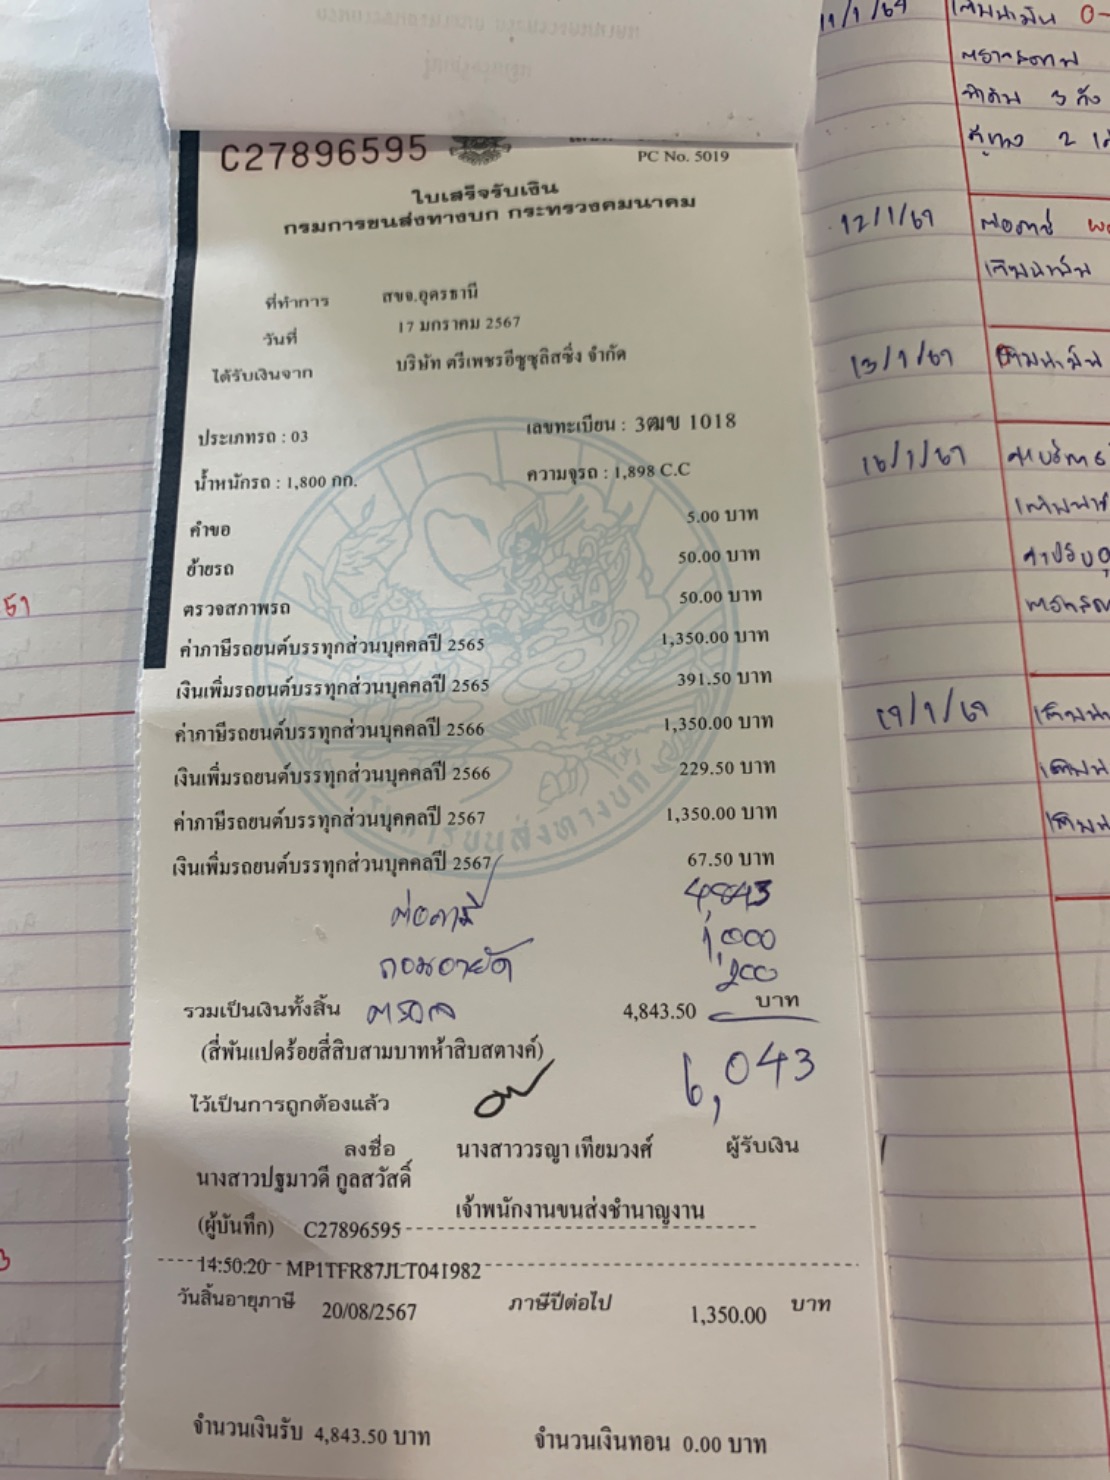 C27896595
PC No. 5019
ใบเสร็จรับเงิน
กรมการขนส่งทางบก กระทรวงคมนาคม
ที่ทำการ สขจ.อุดรธานี
วันที่ 17 มกราคม 2567
ได้รับเงินจาก บริษัท ตรีเพชรอีซูซุลิสซิ่ง จำกัด
ประเภทรถ : 03 เลขทะเบียน : 3ฒข 1018
น้ำหนักรถ : 1,800 กก. ความจุรถ : 1,898 C.C
คำขอ 5.00 บาท
ย้ายรถ 50.00 บาท
ตรวจสภาพรถ 50.00 บาท
ค่าภาษีรถยนต์บรรทุกส่วนบุคคลปี 2565 1,350.00 บาท
เงินเพิ่มรถยนต์บรรทุกส่วนบุคคลปี 2565 391.50 บาท
ค่าภาษีรถยนต์บรรทุกส่วนบุคคลปี 2566 1,350.00 บาท
เงินเพิ่มรถยนต์บรรทุกส่วนบุคคลปี 2566 229.50 บาท
ค่าภาษีรถยนต์บรรทุกส่วนบุคคลปี 2567 1,350.00 บาท
เงินเพิ่มรถยนต์บรรทุกส่วนบุคคลปี 2567 67.50 บาท
ต่อภาษี 4,843
ถอนอายัด 1,000
ตรวจ 200
รวมเป็นเงินทั้งสิ้น 4,843.50 บาท
(สี่พันแปดร้อยสี่สิบสามบาทห้าสิบสตางค์)
6,043
ไว้เป็นการถูกต้องแล้ว
ลงชื่อ นางสาววรญา เทียมวงศ์ ผู้รับเงิน
นางสาวปฐมาวดี กูลสวัสดิ์
เจ้าพนักงานขนส่งชำนาญงาน
(ผู้บันทึก) C27896595
14:50:20 MP1TFR87JLT041982
วันสิ้นอายุภาษี 20/08/2567 ภาษีปีต่อไป 1,350.00 บาท
จำนวนเงินรับ 4,843.50 บาท จำนวนเงินทอน 0.00 บาท
กรมการขนส่งทางบก
11/1/67
12/1/67
13/1/67
16/1/67
19/1/67